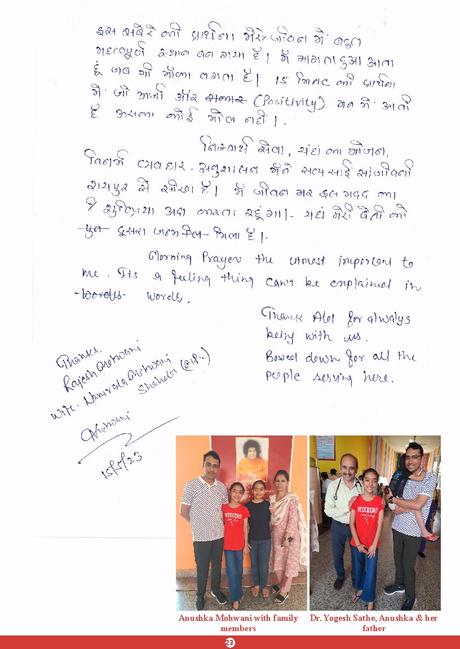 इस सवेरे की प्रार्थना मेरे जीवन में बहुत
महत्वपूर्ण स्थान बन गया है। मैं भागता हुआ आता
हूं जब भी मौका लगता है। 15 मिनट की प्रार्थना
में जो ऊर्जा और (Positivity) मन में आती
है उसका कोई मोल नहीं।
निस्वार्थ सेवा, यहां का भोजन,
विनम्र व्यवहार, अनुशासन मैंने सत्य साईं संजीवनी
रायपुर से सीखा है। मैं जीवन भर इस मदद का
शुक्रिया अदा करता रहूंगा। यहां मेरी बेटी को
दूसरा जन्म मिला है।
Morning Prayer the utmost important to
me. Its a feeling thing can't be explained in
words words.
Thanks Alot for always
being with us.
Bowed down for all the
people serving here.
Thanks.
Rajesh Mohwani
Wife - Namrata Mohwani
Shahdol (M.P.)
15/5/23
Anushka Mohwani with family
members
Dr. Yogesh Sathe, Anushka & her
father
23